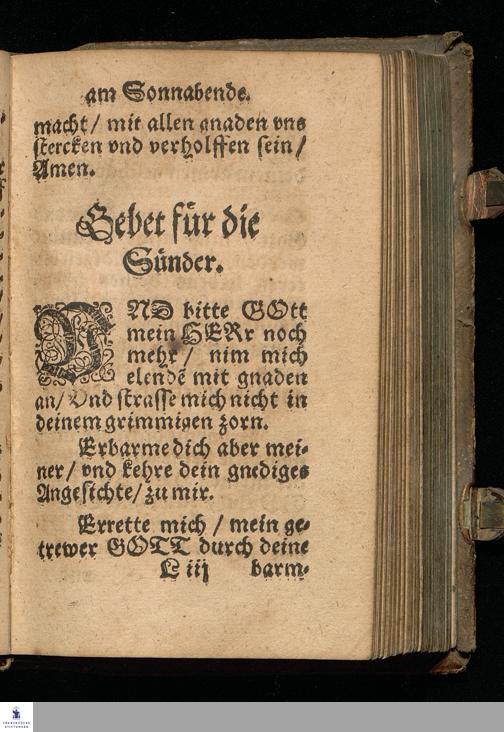 am Sonnabende.
macht/ mit allen gnaden vns
stercken vnd verholffen sein/
Amen.
Gebet für die
Sünder.
VND bitte GOtt
mein HERr noch
mehr/ nim mich
elendē mit gnaden
an/ Vnd straffe mich nicht in
deinem grimmigen zorn.
Erbarme dich aber mei-
ner/ vnd kehre dein gnediges
Angesichte/ zu mir.
Errette mich/ mein ge-
trewer GOTT durch deine
L iij barm-
FRANCKESCHE
STIFTUNGEN